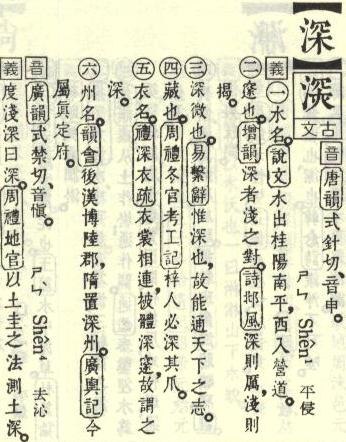 深
𣸧 古文
音 唐韻式針切、音申。ㄕㄣ Shên¹ 平侵
義 一 水名。說文水出桂陽南平、西入營道。
二 邃也。增韻深者淺之對。詩邶風深則厲、淺則
揭。
三 深微也。易繫辭惟深也、故能通天下之志。
四 藏也。周禮冬官考工記梓人必深其爪。
五 衣名。禮深衣疏衣裳相連、被體深邃、故謂之
深。
六 州名。韻會後漢博陸郡、隋置深州。廣輿記今
屬眞定府。
音 廣韻式禁切、音愼。ㄕㄣ Shên⁴ 去沁
義 度淺深曰深。周禮地官以土圭之法測土深。